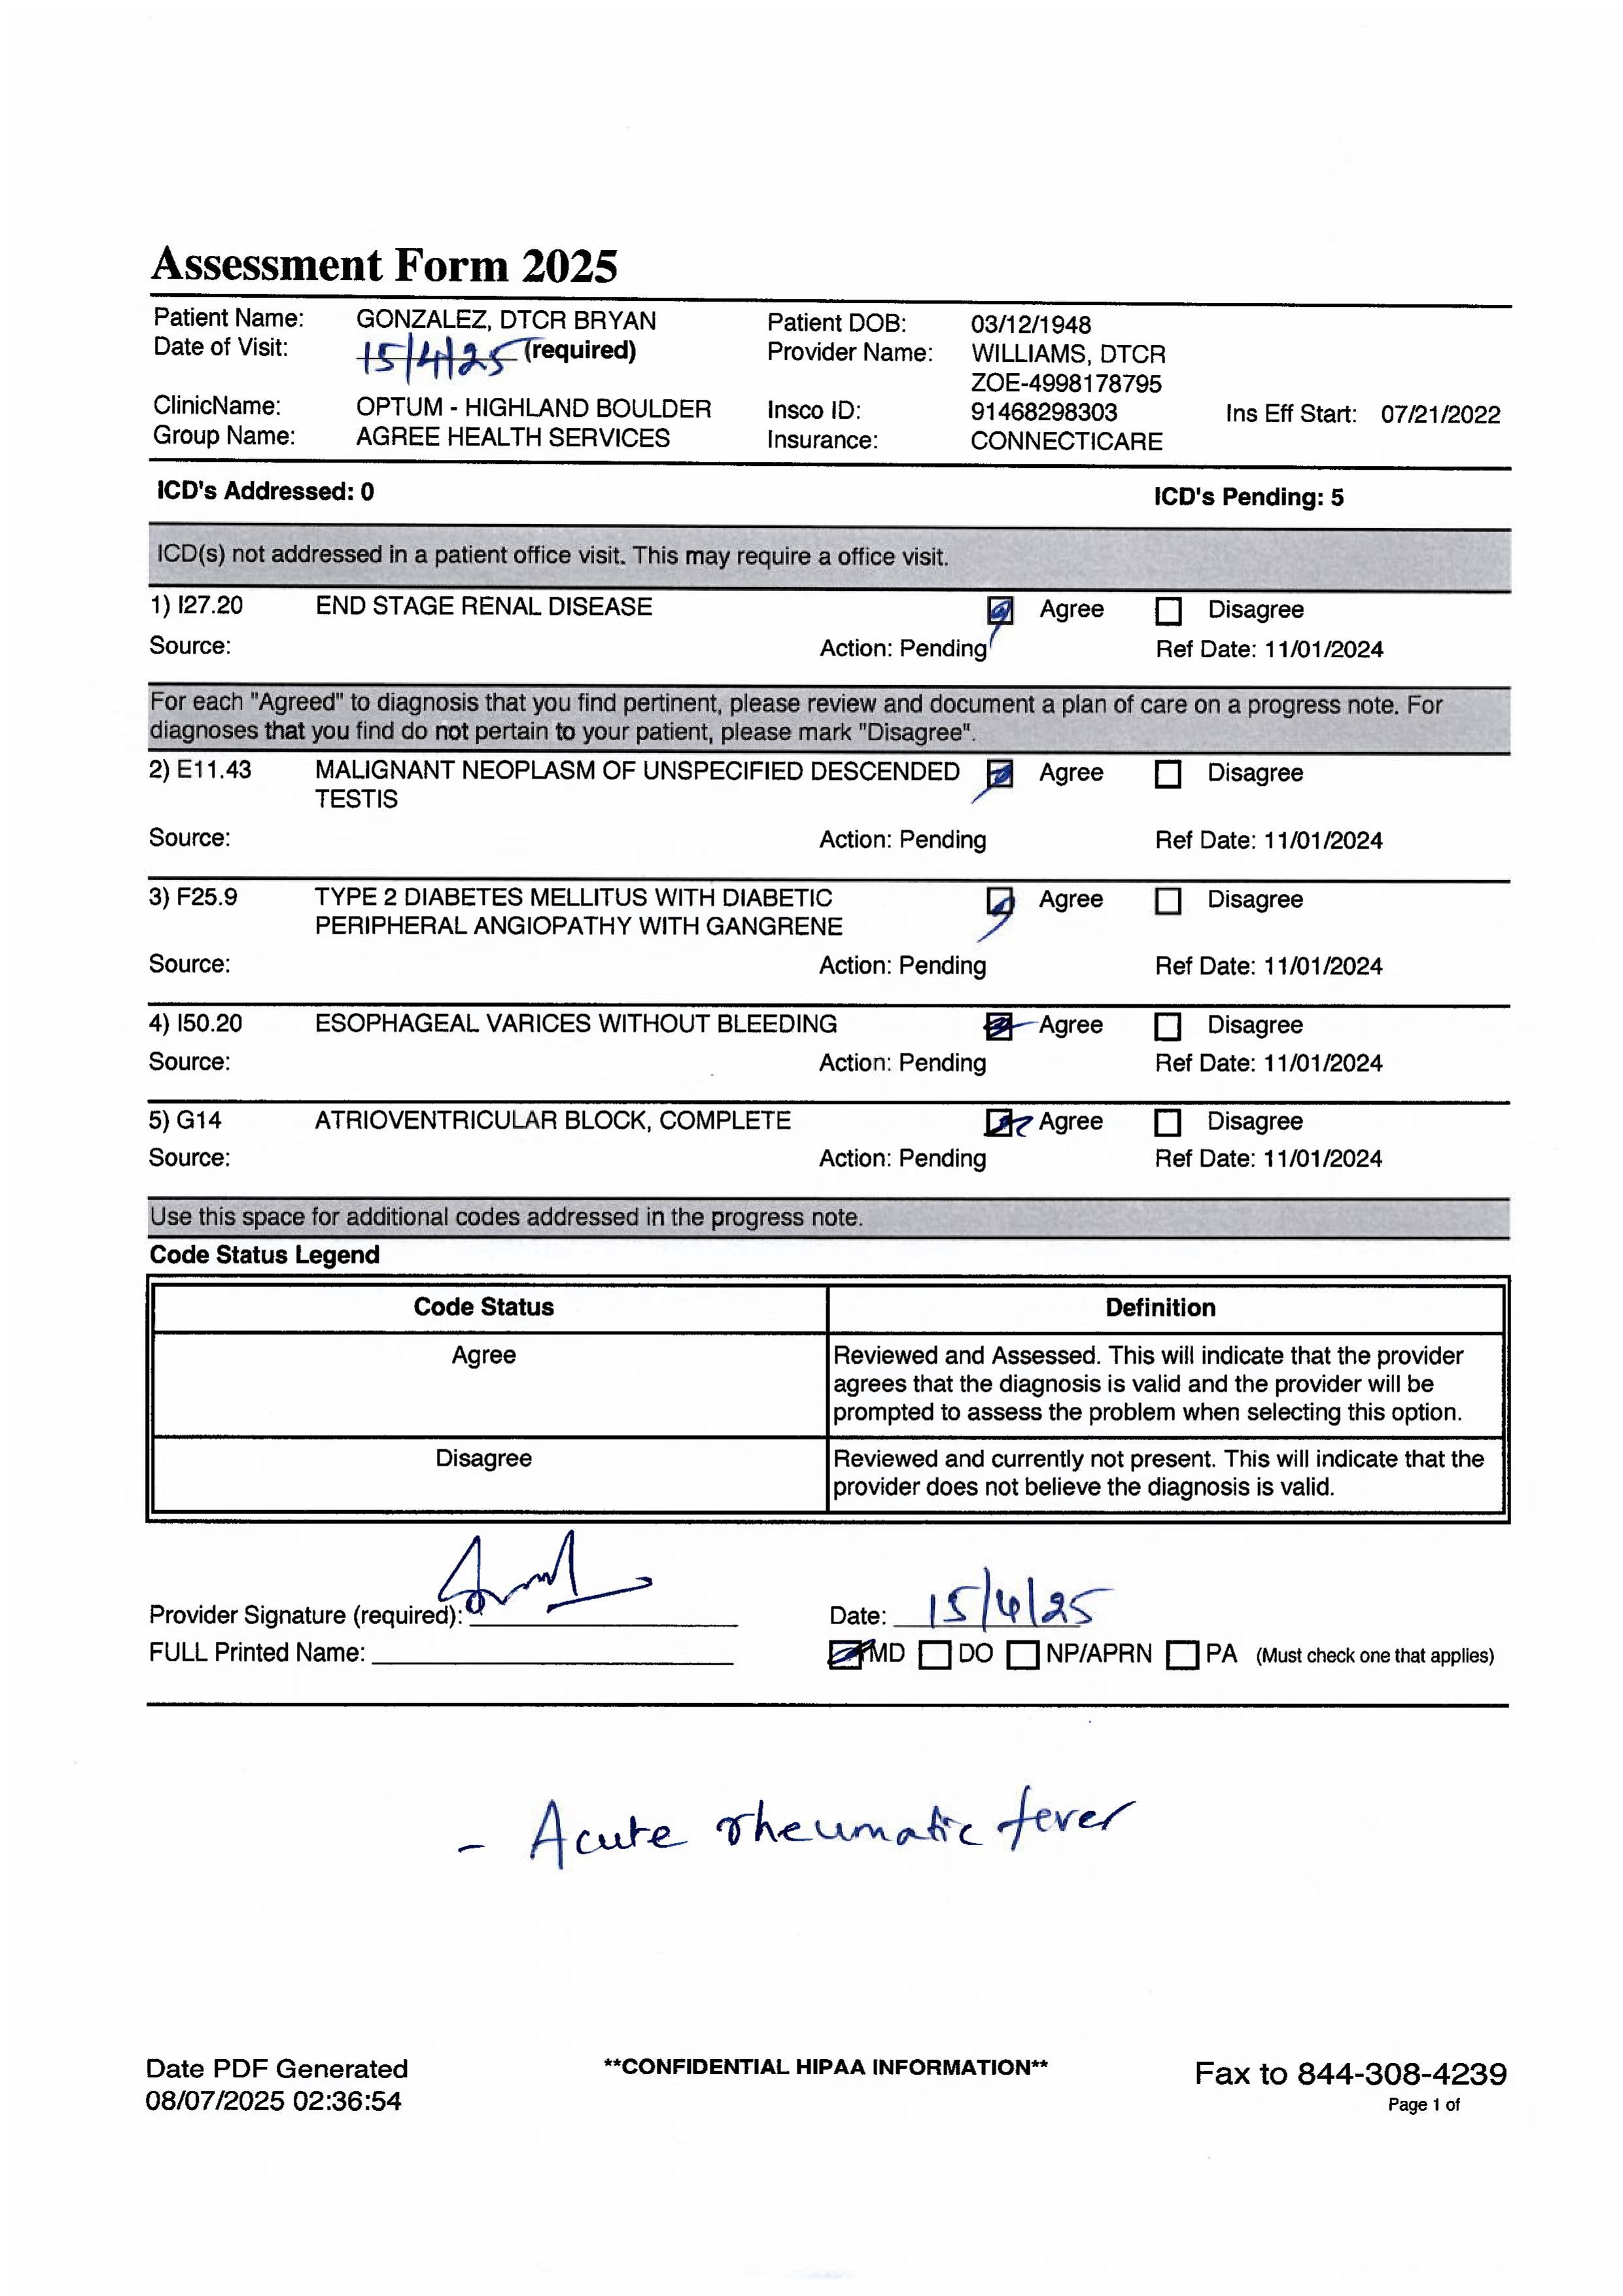 Assessment Form 2025
Patient Name: GONZALEZ, DTCR BRYAN Patient DOB: 03/12/1948
Date of Visit: 15/4/25 (required) Provider Name: WILLIAMS, DTCR
ZOE-4998178795
ClinicName: OPTUM - HIGHLAND BOULDER Insco ID: 91468298303 Ins Eff Start: 07/21/2022
Group Name: AGREE HEALTH SERVICES Insurance: CONNECTICARE
ICD's Addressed: 0 ICD's Pending: 5
ICD(s) not addressed in a patient office visit. This may require a office visit.
1) I27.20 END STAGE RENAL DISEASE Agree Disagree
Source: Action: Pending Ref Date: 11/01/2024
For each "Agreed" to diagnosis that you find pertinent, please review and document a plan of care on a progress note. For
diagnoses that you find do not pertain to your patient, please mark "Disagree".
2) E11.43 MALIGNANT NEOPLASM OF UNSPECIFIED DESCENDED Agree Disagree
TESTIS
Source: Action: Pending Ref Date: 11/01/2024
3) F25.9 TYPE 2 DIABETES MELLITUS WITH DIABETIC Agree Disagree
PERIPHERAL ANGIOPATHY WITH GANGRENE
Source: Action: Pending Ref Date: 11/01/2024
4) I50.20 ESOPHAGEAL VARICES WITHOUT BLEEDING Agree Disagree
Source: Action: Pending Ref Date: 11/01/2024
5) G14 ATRIOVENTRICULAR BLOCK, COMPLETE Agree Disagree
Source: Action: Pending Ref Date: 11/01/2024
Use this space for additional codes addressed in the progress note.
Code Status Legend
Code Status Definition
Agree Reviewed and Assessed. This will indicate that the provider
agrees that the diagnosis is valid and the provider will be
prompted to assess the problem when selecting this option.
Disagree Reviewed and currently not present. This will indicate that the
provider does not believe the diagnosis is valid.
Provider Signature (required): Date: 15/4/25
FULL Printed Name: MD DO NP/APRN PA (Must check one that applies)
- Acute rheumatic fever
Date PDF Generated **CONFIDENTIAL HIPAA INFORMATION** Fax to 844-308-4239
08/07/2025 02:36:54 Page 1 of